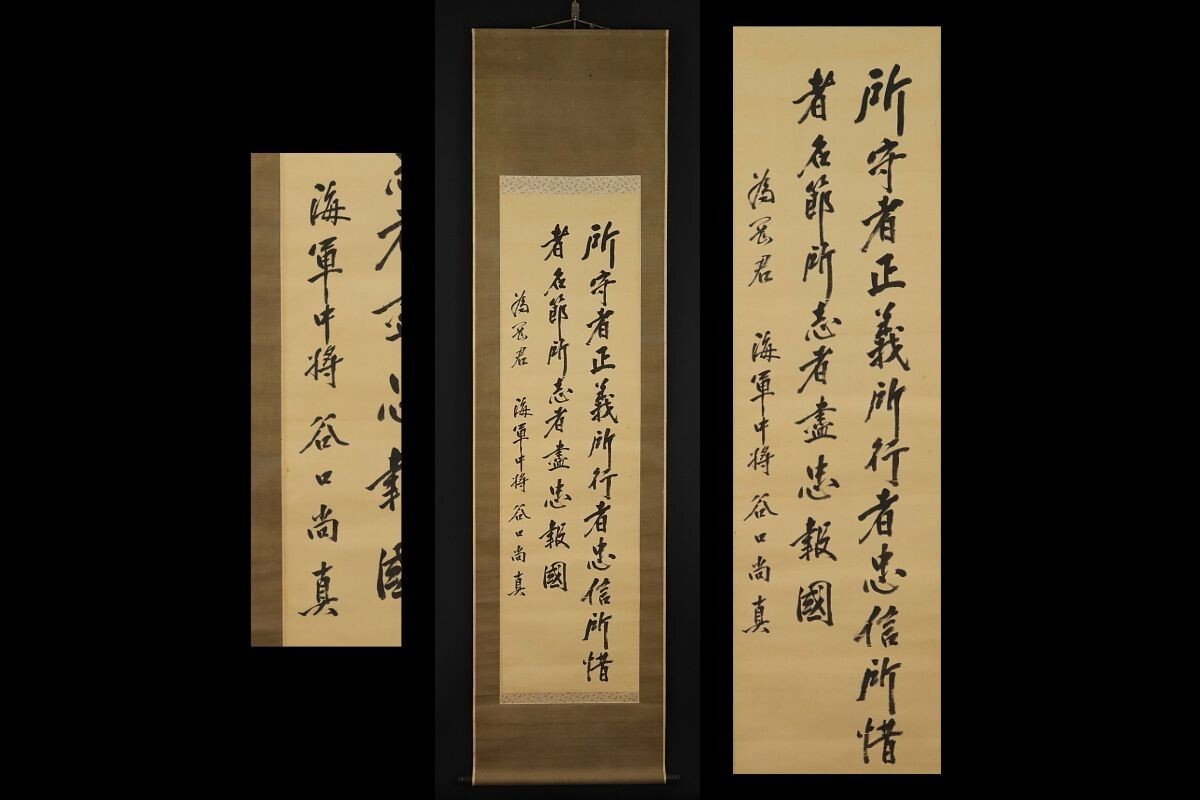 海軍中将 谷口尚真
所守者正義所行者忠信所惜
者名節所志者盡忠報國
為君 海軍中将 谷口尚真
所守者正義所行者忠信所惜
者名節所志者盡忠報國
為君 海軍中将 谷口尚真